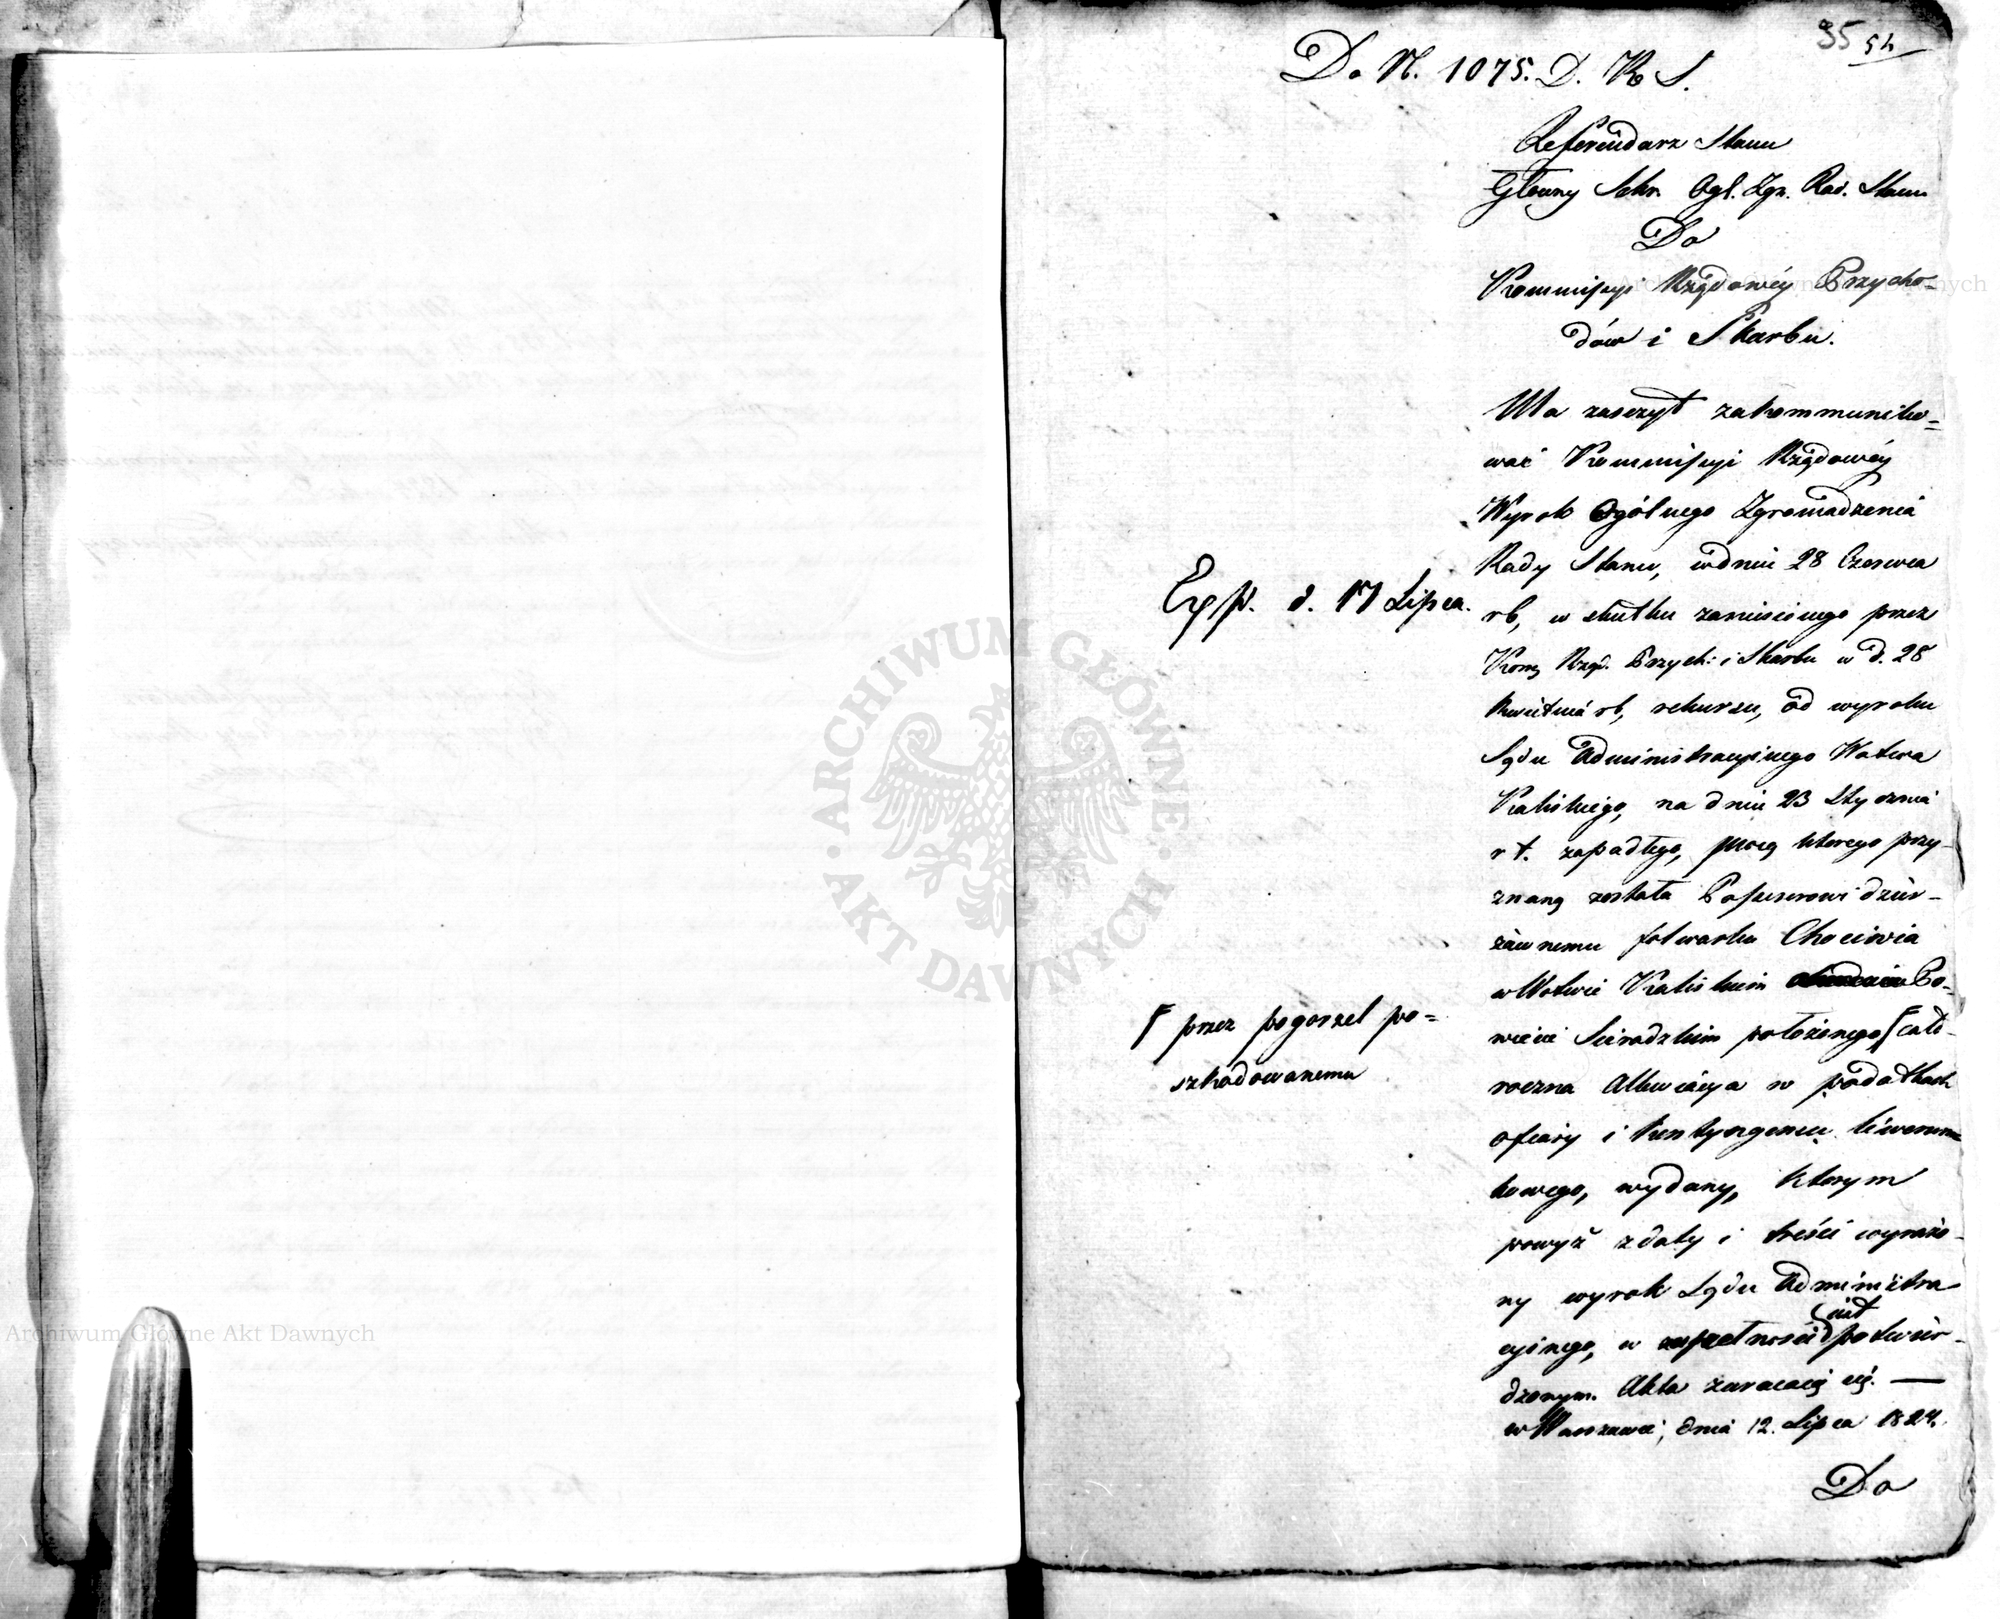 35 54
Do N. 1075. D. R S.
Referendarz Stanu
Główny Sekr. Ogl. Zgr. Rad. Stanu
Do
Kommissyi Rządowéy Przycho-
dów i Skarbu.
Ma zaszczyt zakommuniko=
wać Kommissyi Rządowéy
Wyrok Ogólnego Zgromadzenia
Rady Stanu, w dniu 28 Czerwca
rb, w skutku zaniesionego przez
Kom. Rząd. Przych: i Skarbu w d. 28
Kwietnia rb, rekursu, od wyroku
Sądu Administracyinego Wotwa
Kaliskiego, na dniu 23 Stycznia
r t. zapadłego, mocą którego przy-
znaną została Possessorowi dzier-
żawnemu folwarku Chociwia
w Wotwie Kaliskim Po-
wiecie Sieradzkim położonego, Γ cało-
roczna Allewiacya w podatkach
ofiary i kontyngensu liwerun-
kowego, wydany, którym
powyż z daty i treści wyrażo-
ny wyrok Sądu Administra-
cyinego, w zupełności iest potwier-
dzonym. Akta zwracaią się. —
w Warszawie, dnia 12. Lipca 1824.
Do
Exp. d. 17 Lipca.
Γ przez pogorzel po=
szkodowanemu
ARCHIWUM GŁÓWNE
AKT DAWNYCH
Archiwum Główne Akt Dawnych
Archiwum Główne Akt Dawnych